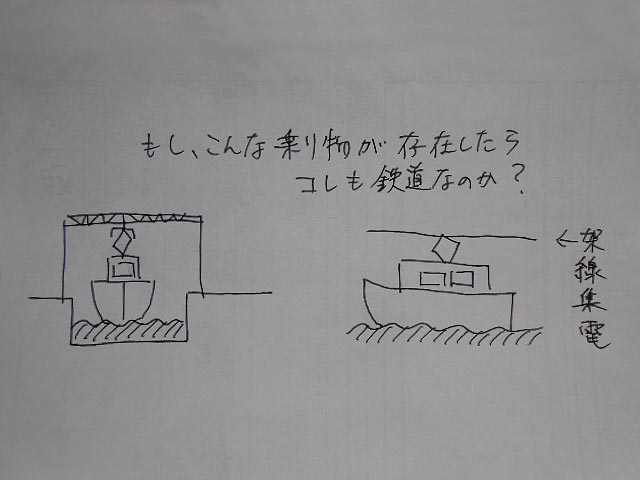 もし、こんな乗り物が存在したら
コレも鉄道なのか？
←架線集電